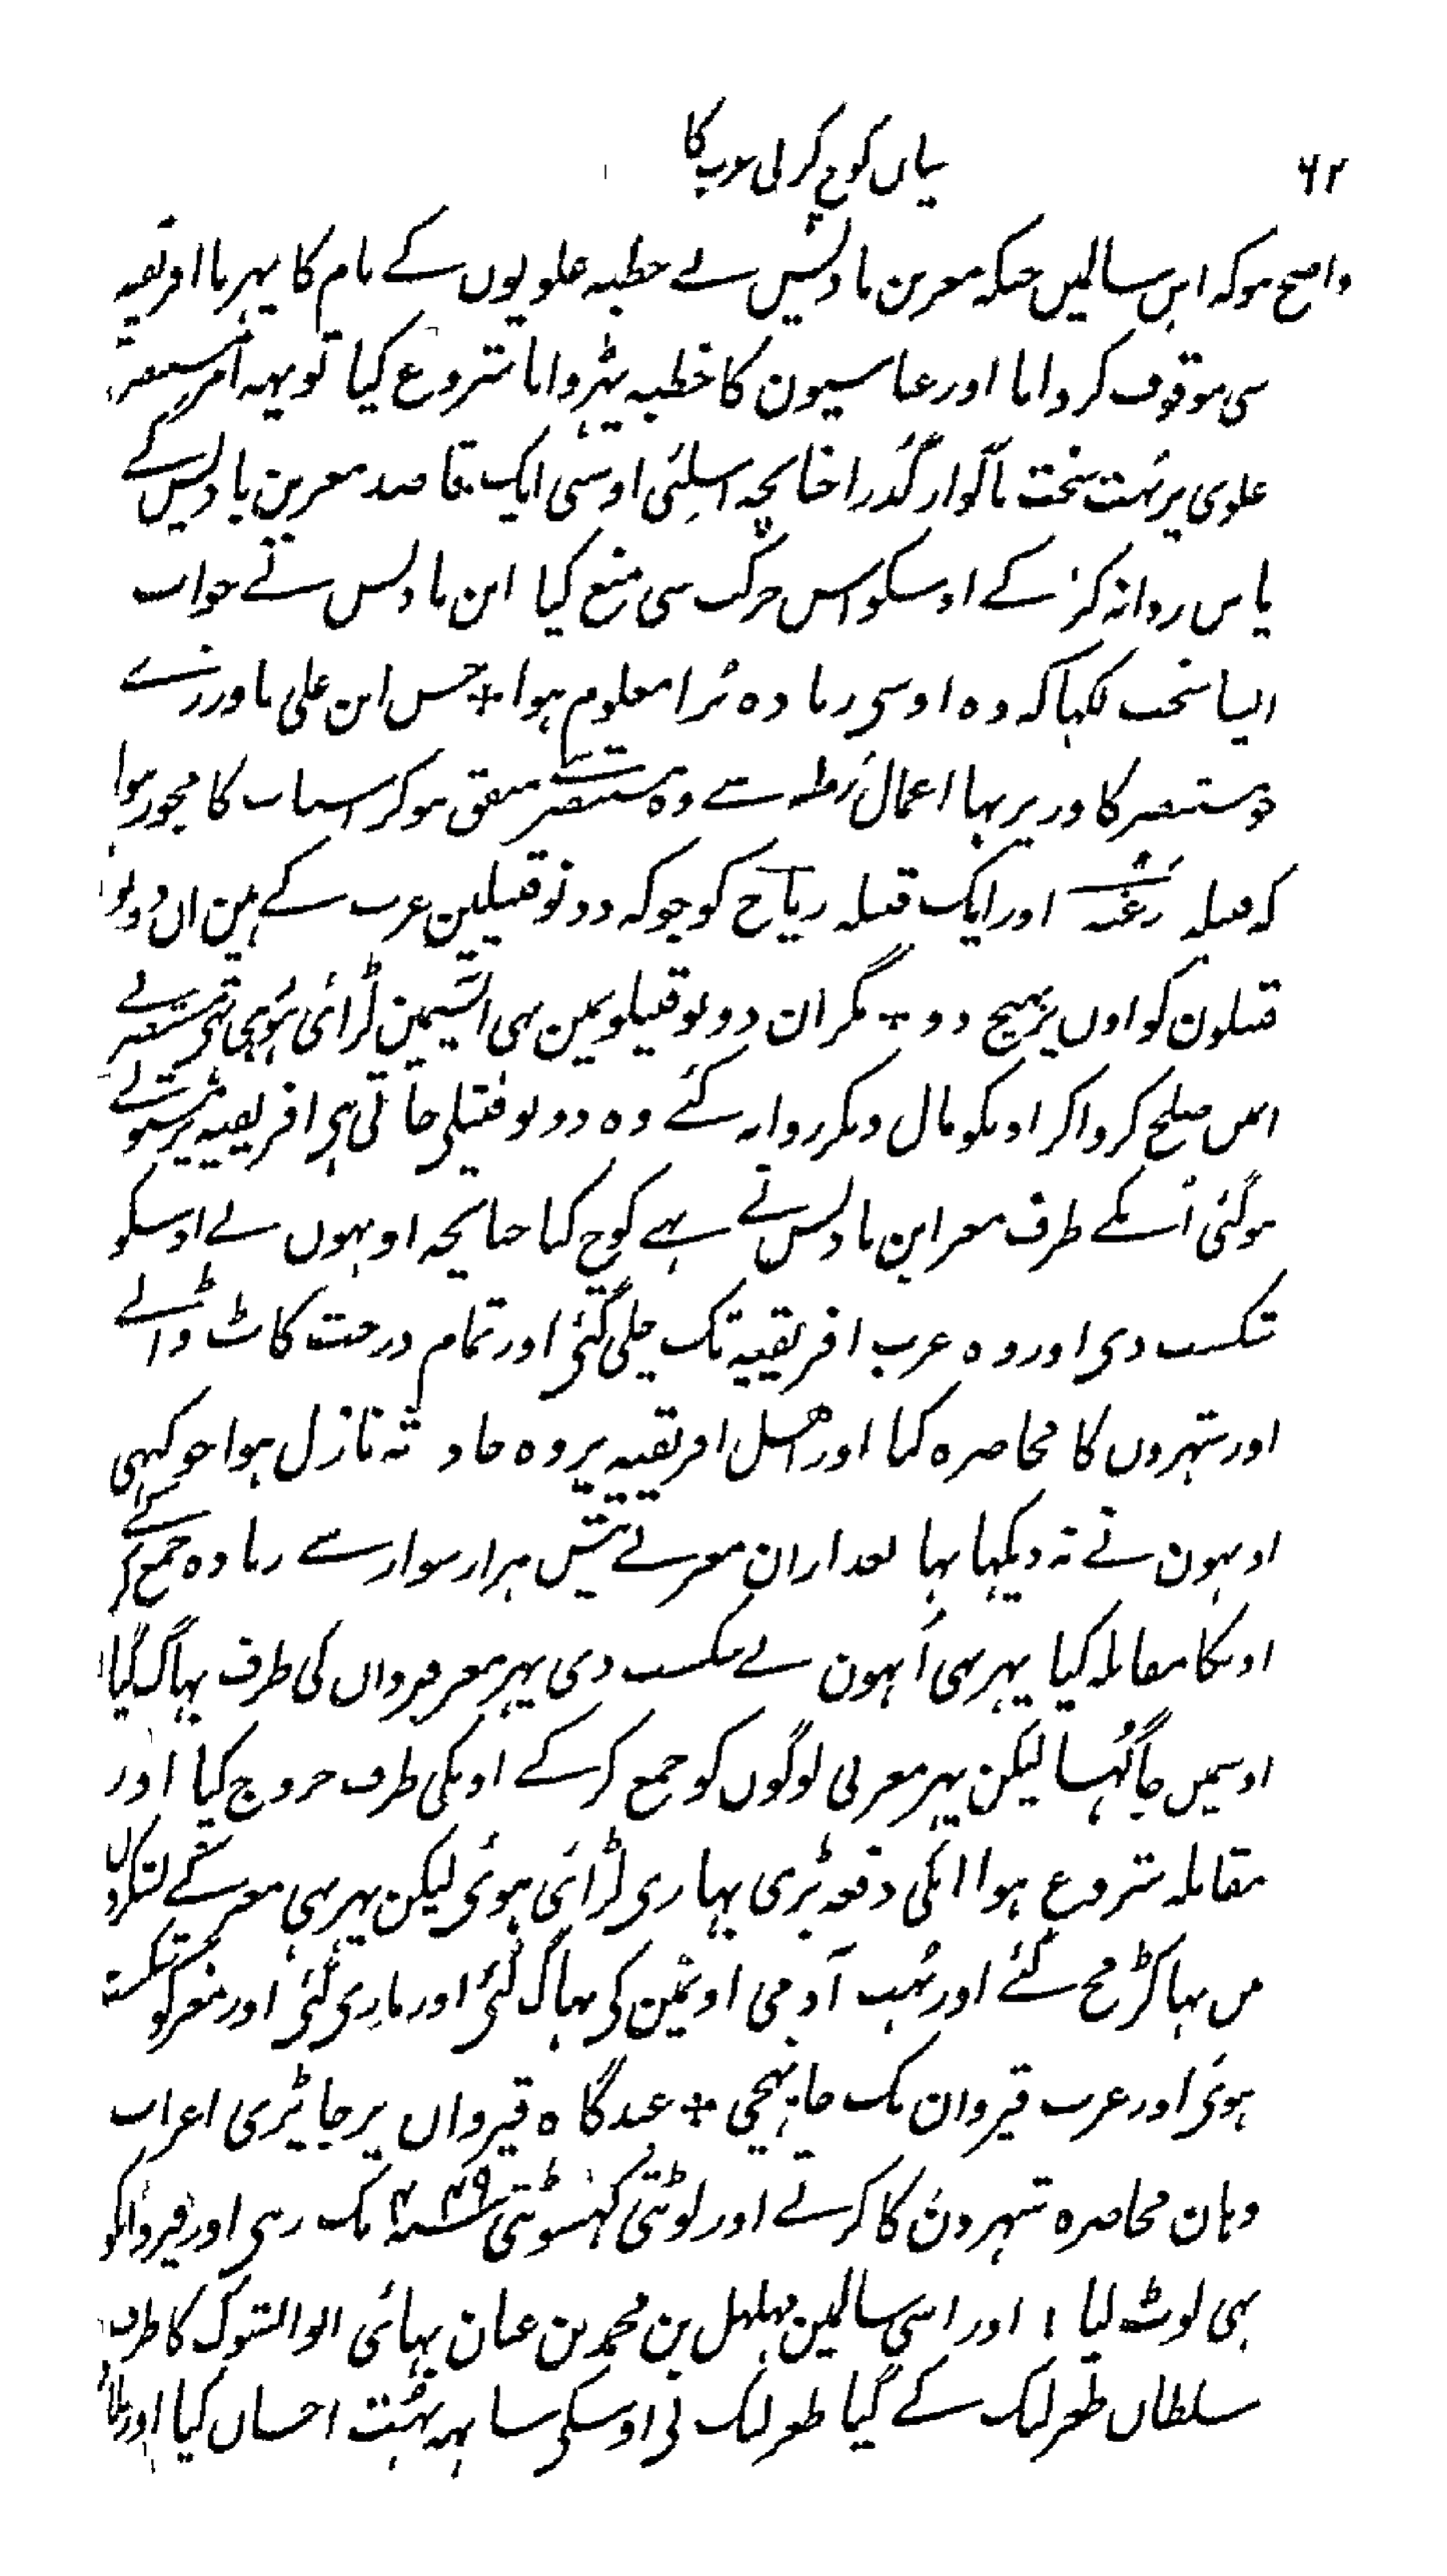 ۶۲
بیاں کوچ کرنی عرب کا
واضح ہو کہ اس سالمیں جبکہ معز بن بادیس نے خطبہ علویوں کے نام کا پہرنا افریقیہ
سی موقوف کروایا اور عباسیون کا خطبہ پڑہوانا شروع کیا تو یہہ امر مستنصر
علوی پر بہت سخت ناگوار گذرا چنانچہ اسلئی اوسی ایک قاصد معز بن بادیس کے
پاس روانہ کر کے اوسکو اس حرکت سی منع کیا ابن بادیس نے جواب
ایسا سخت لکہا کہ وہ اوسی زیادہ بُرا معلوم ہوا + حسن ابن علی یازوری نے
جو مستنصر کا وزیر تہا اعمال رملہ سے وہ مستنصر متفق ہو کر اسبات کا مجوز ہوا
کہ قبیلہ زغبہ اور ایک قبیلہ ریاح کو جو کہ دونو قبیلین عرب کے ہین ان دونو
قبیلون کو اوں پر بہیج دو + مگر ان دونو قبیلونمین ہی اپسمین لڑائی ہوئی تہی مستنصر نے
اسمیں صلح کروا کر اونکو مال دیکر روانہ کئے وہ دونو قبیلی جاتی ہی افریقیہ پر مستولے
ہو گئی اُنکے طرف معز ابن بادیس نے بہے کوچ کیا چنانچہ اونہوں نے اوسکو
شکست دی اور وہ عرب افریقیہ تک چلی گئی اور تمام درخت کاٹ ڈالے
اور شہروں کا محاصرہ کیا اور اہل افریقیہ پر وہ حادثہ نازل ہوا جو کبہی
اونہون نے نہ دیکہا تہا بعد ازان معز نے تیس ہزار سوار سے زیادہ جمع کر کے
اونکا مقابلہ کیا پہر بہی اُنہون نے شکست دی پہر معز قیروان کی طرف بہاگ گیا
اوسمیں جا گہسا لیکن پہر معز نی لوگوں کو جمع کر کے اونکی طرف خروج کیا اور
مقابلہ شروع ہوا ابکی دفعہ بڑی بہاری لڑائی ہوئی لیکن پہر بہی معز کے لشکروں
میں بہاگڑ مچ گئے اور بہت آدمی اونمین کی بہاگ گئی اور ماری گئی اور معز کو شکست
ہوئی اور عرب قیروان تک جا پہنچی + عیدگاہ قیرواں پر جا پڑی اعراب
وہان محاصرہ شہرون کا کرتے اور لوٹتی کہسوٹتی سنہ ۴۴۹ تک رہی اور قیروانکو
بہی لوٹ لیا ، اور اسی سالمین مہلہل بن محمد بن عنان بہائی ابو الشوک کا طرف
سلطاں طغرلبک کے گیا طغرلبک نی اوسکی ساتہہ بہت احساں کیا اور